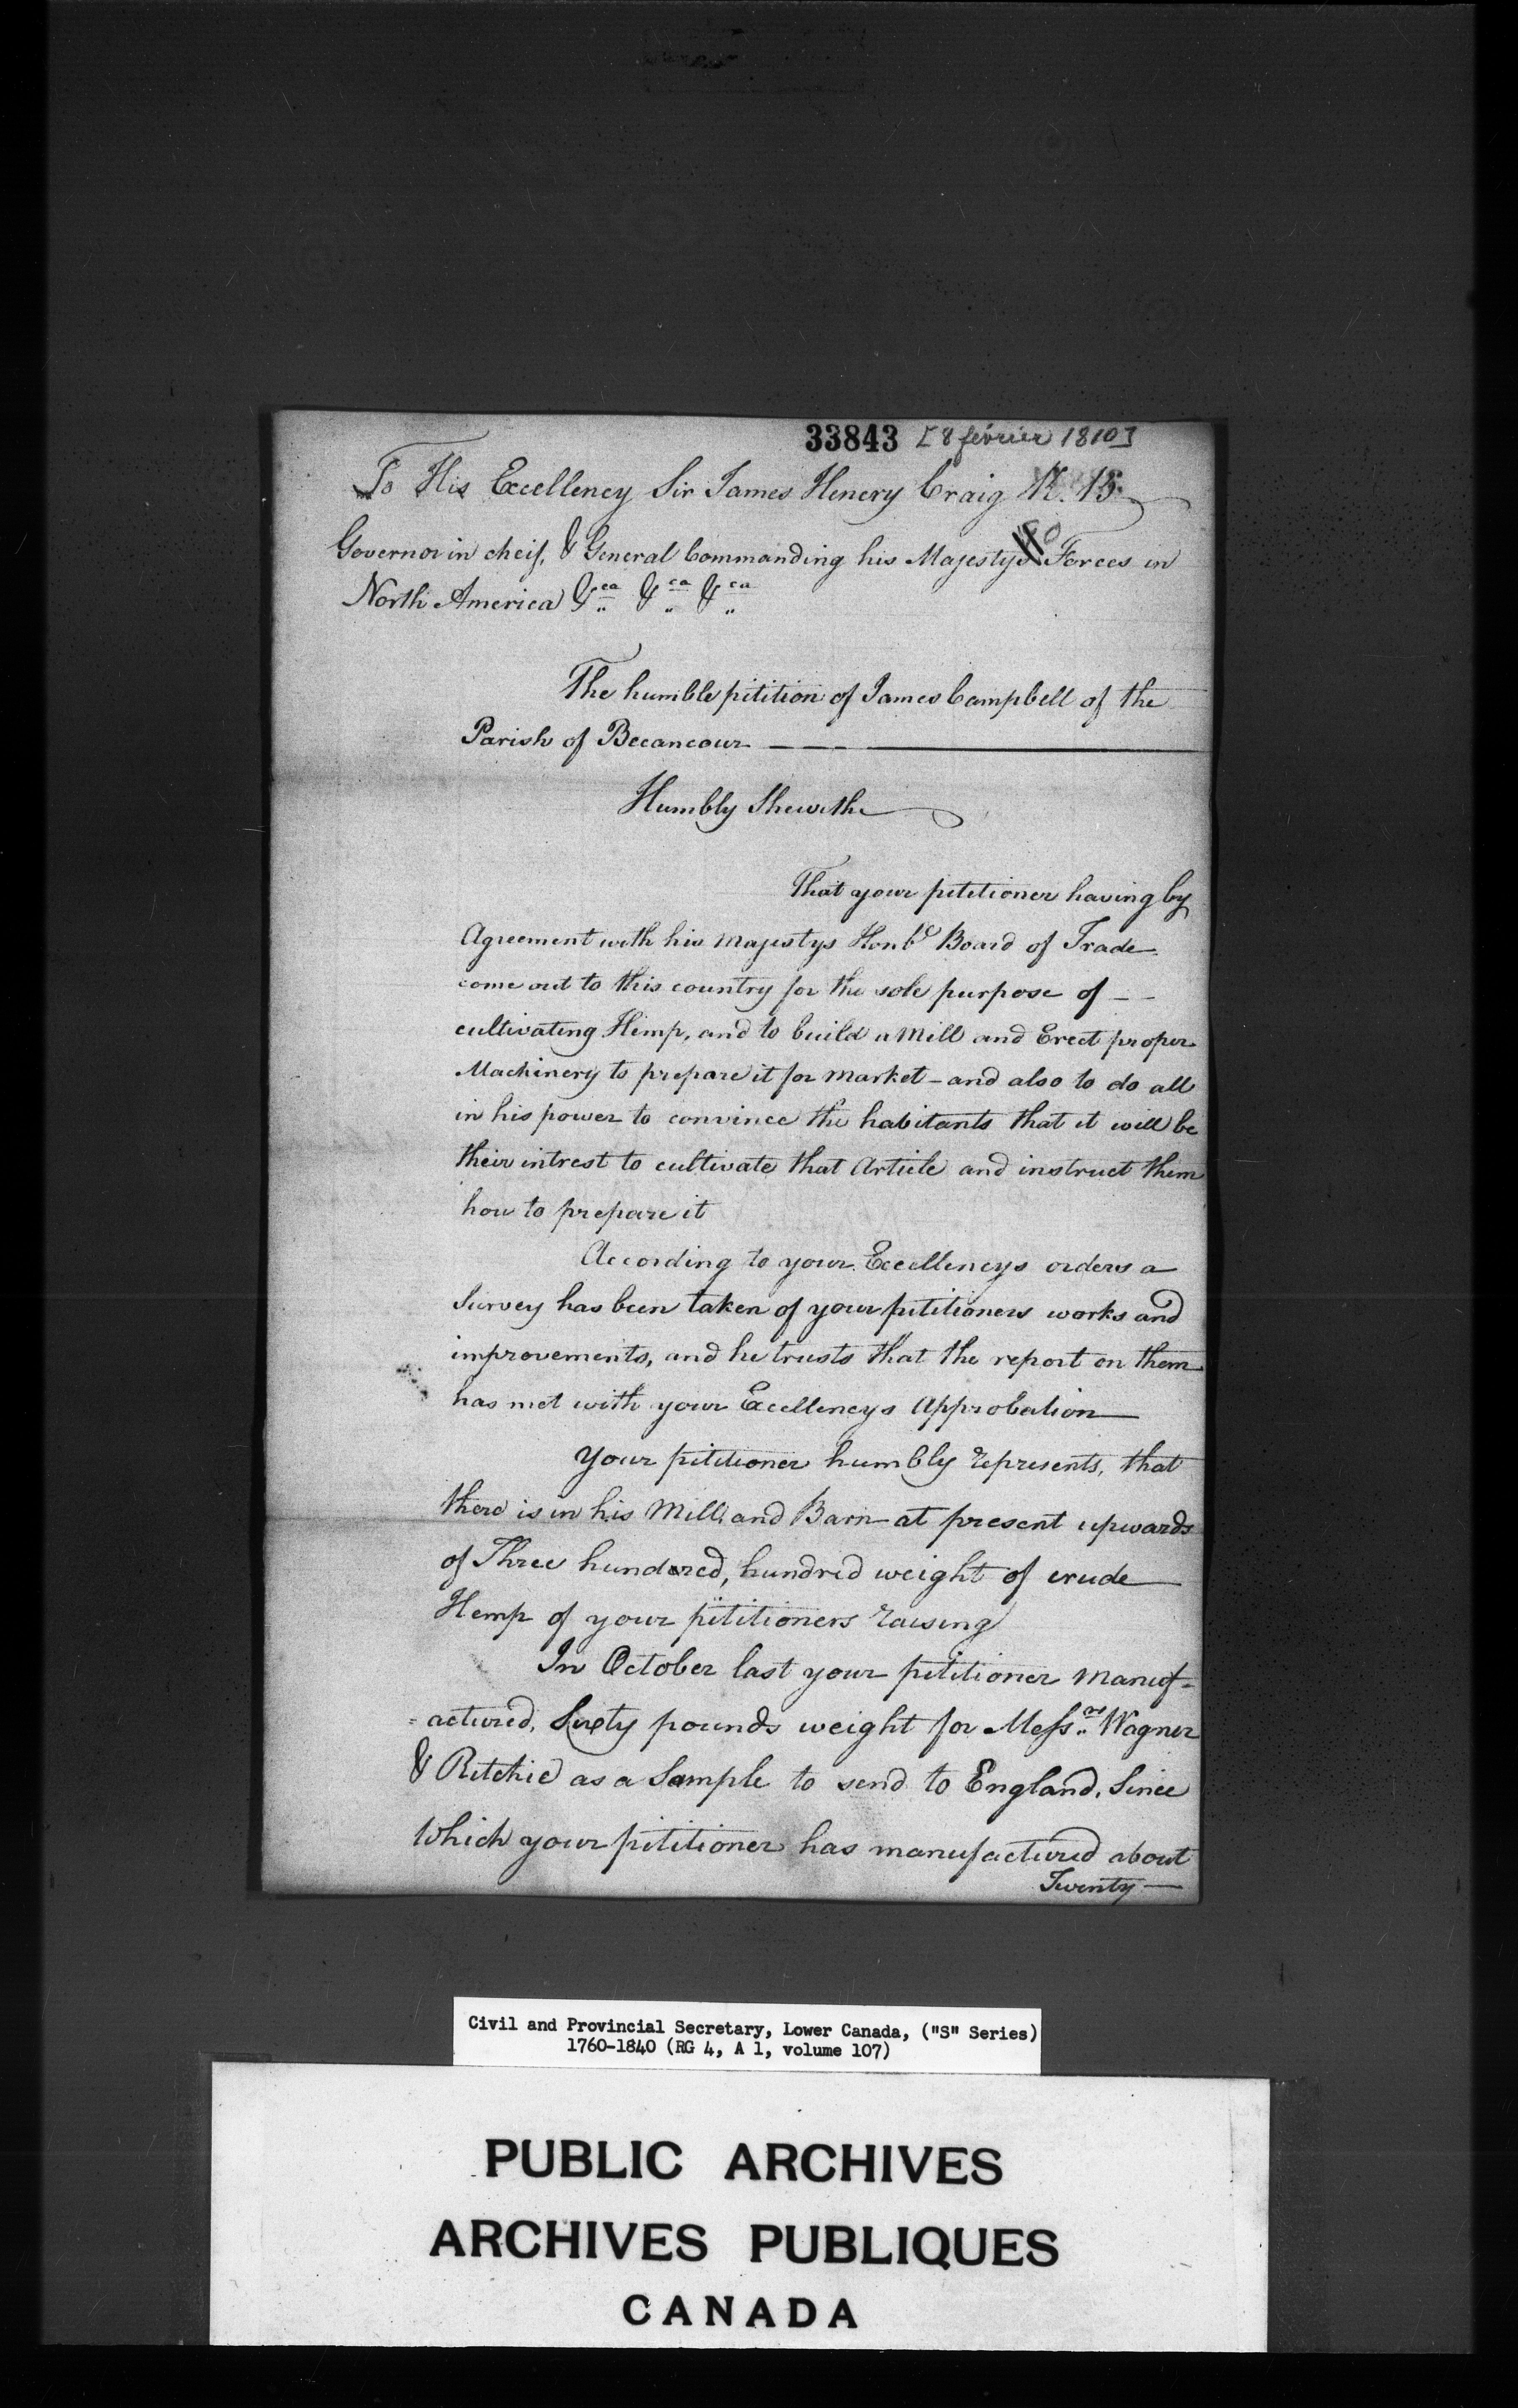 33843 [8 février 1810]
To His Excellency Sir James Henery Craig K. B.
Governor in cheif, & General Commanding his Majestys Forces in
North America &ca &ca &ca
The humble pitition of James Campbell of the
Parish of Becancour
Humbly Sheweth
That your pititioner having by
Agreement with his Majestys Honble Board of Trade
come out to this country for the sole purpose of
cultivating Hemp, and to build a Mill and Erect proper
Machinery to prepare it for market - and also to do all
in his power to convince the habitants that it will be
their intrest to cultivate that Article and instruct them
how to prepare it
According to your Excellencys orders a
Survey has been taken of your pititioners works and
improvements, and he trusts that the report on them
has met with your Excellencys Approbation
Your pititioner humbly represents, that
there is in his Mill and Barn at present upwards
of Three hundered, hundred weight of crude
Hemp of your pititioners raising
In October last your pititioner Manuf=
=actured, Sixty pounds weight for Messrs Wagner
& Ritchie as a Sample to send to England, Since
Which your pititioner has manufactured about
Twenty
Civil and Provincial Secretary, Lower Canada, ("S" Series)
1760-1840 (RG 4, A 1, volume 107)
PUBLIC ARCHIVES
ARCHIVES PUBLIQUES
CANADA